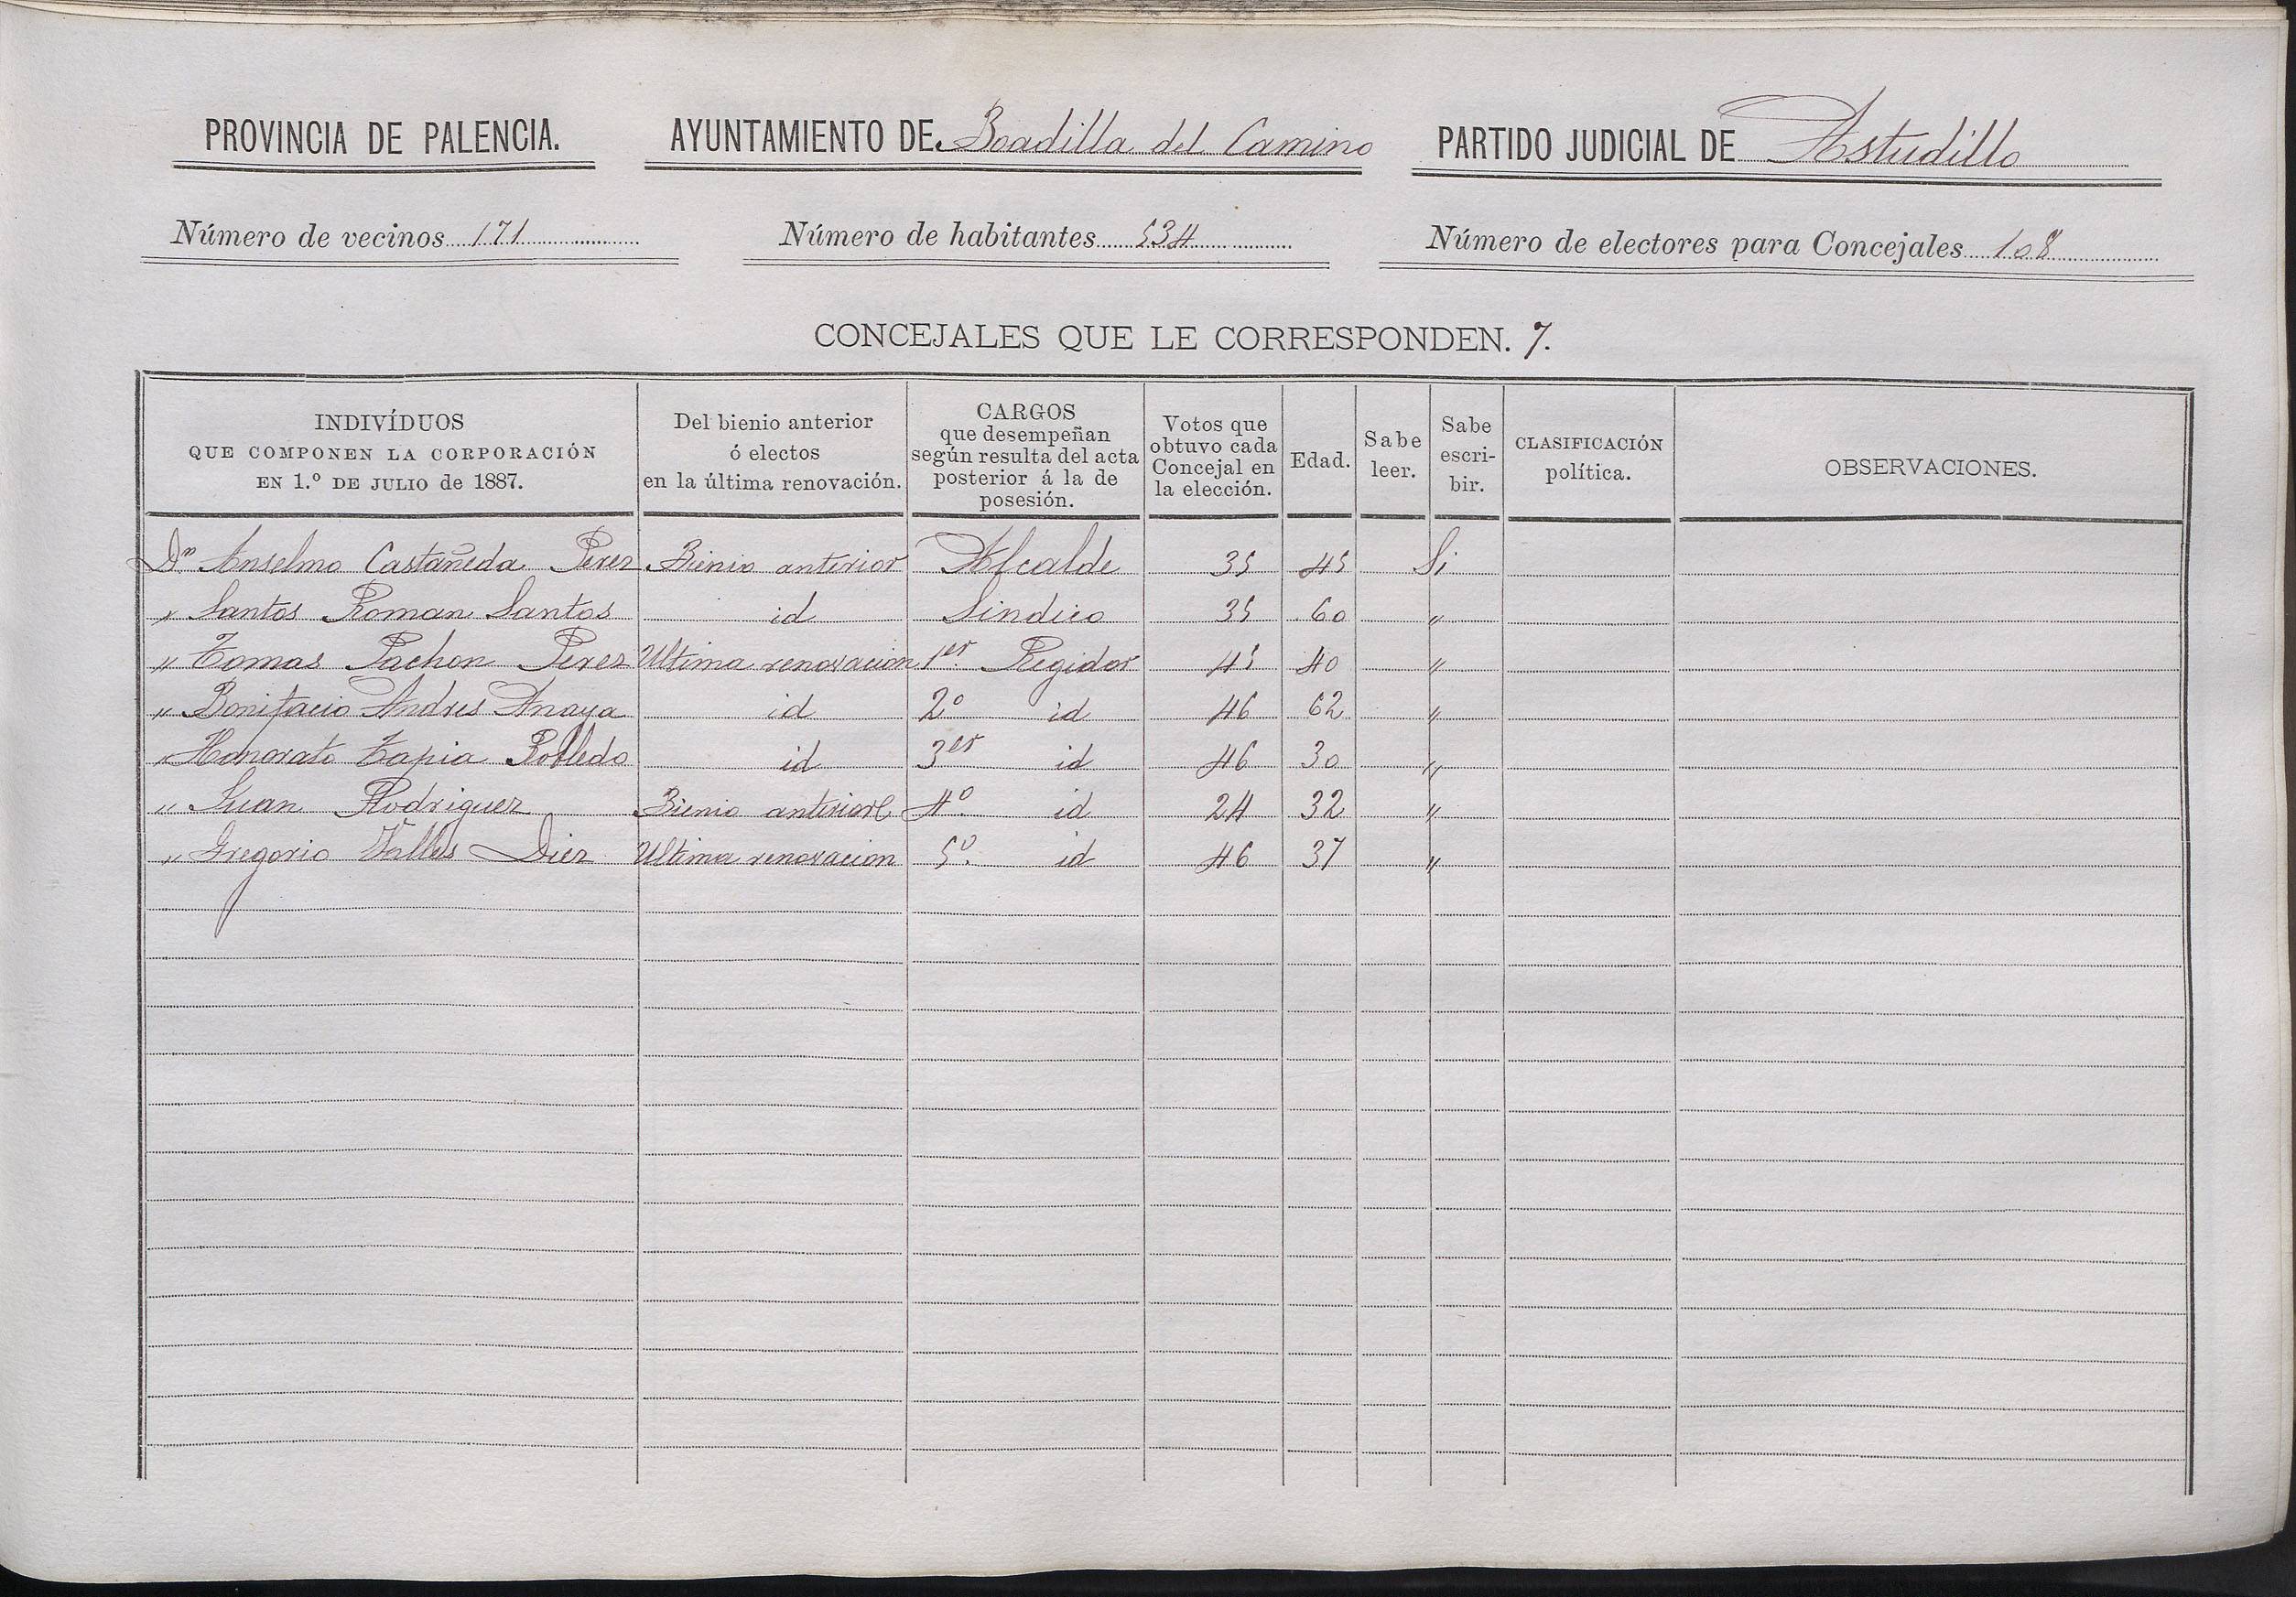 PROVINCIA DE PALENCIA. AYUNTAMIENTO DE Boadilla del Camino PARTIDO JUDICIAL DE Astudillo
Número de vecinos 171 Número de habitantes 534 Número de electores para Concejales 108
CONCEJALES QUE LE CORRESPONDEN. 7.
INDIVÍDUOS QUE COMPONEN LA CORPORACIÓN EN 1.º DE JULIO de 1887. Del bienio anterior ó electos en la última renovación. CARGOS que desempeñan según resulta del acta posterior á la de posesión. Votos que obtuvo cada Concejal en la elección. Edad. Sabe leer. Sabe escri- bir. CLASIFICACIÓN política. OBSERVACIONES.
Dn Anselmo Castañeda Perez Bienio anterior Alcalde 35 45 Si
" Santos Roman Santos id Sindico 35 60 "
" Tomas Pachon Perez Ultima renovacion 1er Regidor 45 40 "
" Bonifacio Andres Anaya id 2º id 46 62 "
" Honorato Tapia Robledo id 3er id 46 30 "
" Juan Rodriguez Bienio anterior 4º id 24 32 "
" Gregorio Valles Diez Ultima renovacion 5º. id 46 37 "